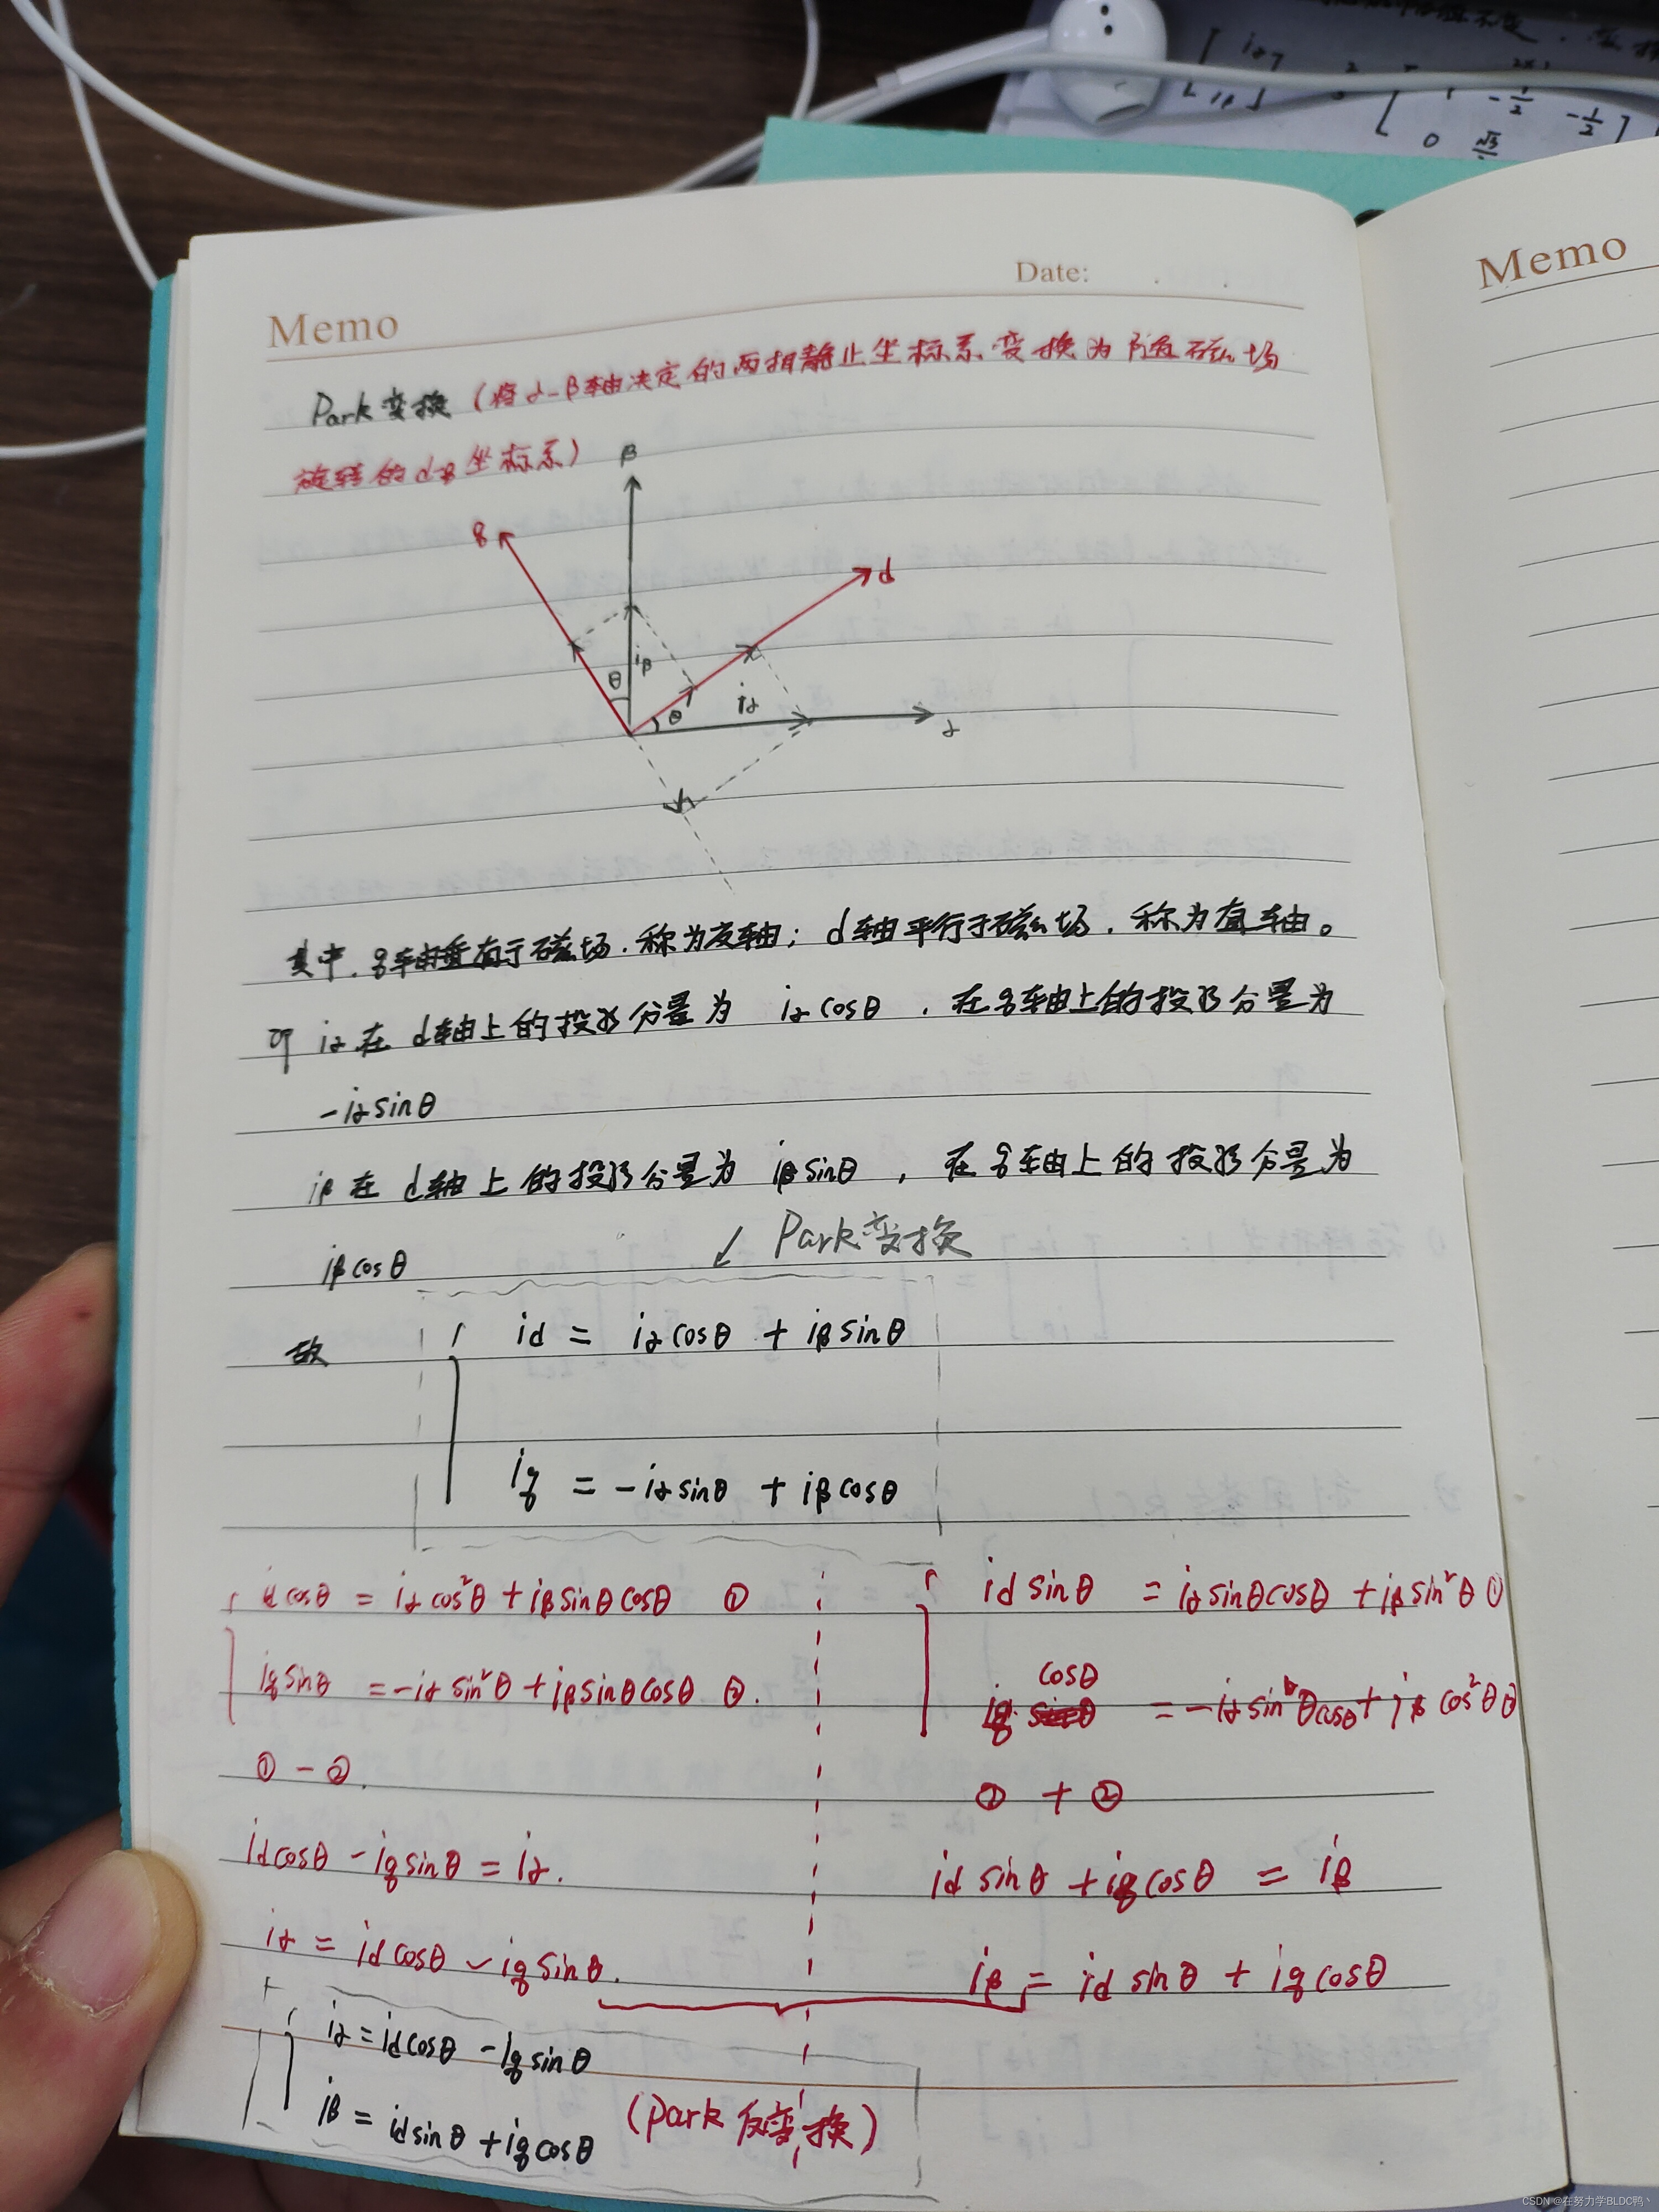 [iα]
[iβ]
1 -1/2 -1/2
0 √3
Memo
Date:
Memo
Park变换（将α-β轴决定的两相静止坐标系变换为随磁场
旋转的d-q坐标系）
β
q
d
θ
iβ
θ
iα
α
其中，q轴垂直于磁场，称为交轴；d轴平行于磁场，称为直轴。
则 iα在 d轴上的投影分量为 iαcosθ，在q轴上的投影分量为
-iαsinθ
iβ在 d轴上的投影分量为 iβsinθ，在q轴上的投影分量为
iβcosθ
Park变换
故
id = iαcosθ + iβsinθ
iq = -iαsinθ + iβcosθ
idcosθ = iαcos²θ + iβsinθcosθ ①
iqsinθ = -iαsin²θ + iβsinθcosθ ②.
①-②.
idcosθ - iqsinθ = iα.
iα = idcosθ - iqsinθ.
idsinθ = iαsinθcosθ + iβsin²θ ①
iqcosθ = -iαsinθcosθ + iβcos²θ ②
① + ②
idsinθ + iqcosθ = iβ
iβ = idsinθ + iqcosθ
iα = idcosθ - iqsinθ
iβ = idsinθ + iqcosθ
（Park反变换）
CSDN @在努力学BLDC鸭丶